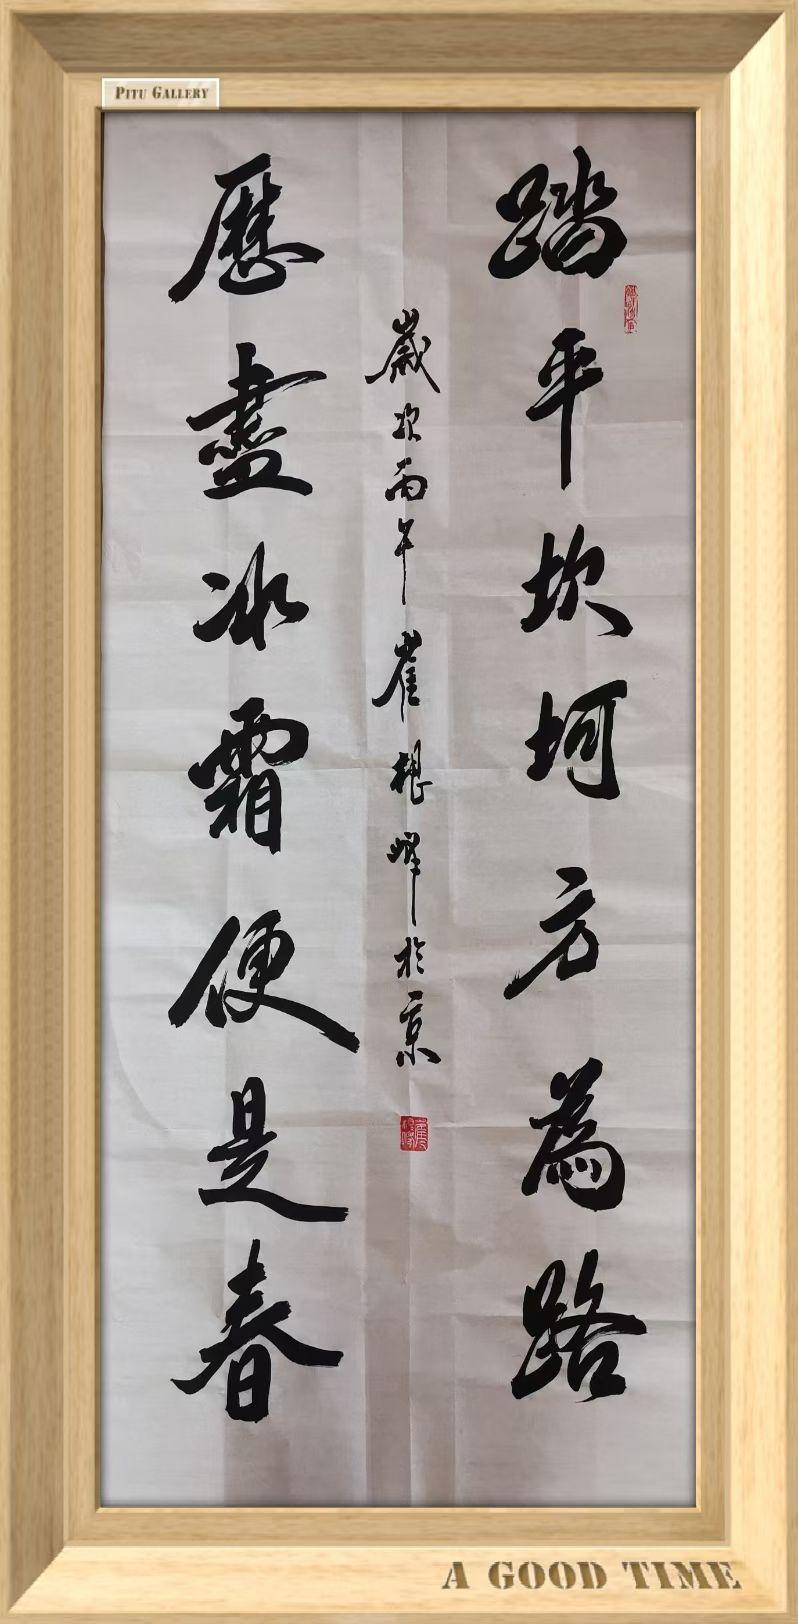 PITU GALLERY
踏平坎坷方為路
歲次丙午崔根峰於京
歷盡冰霜便是春
A GOOD TIME